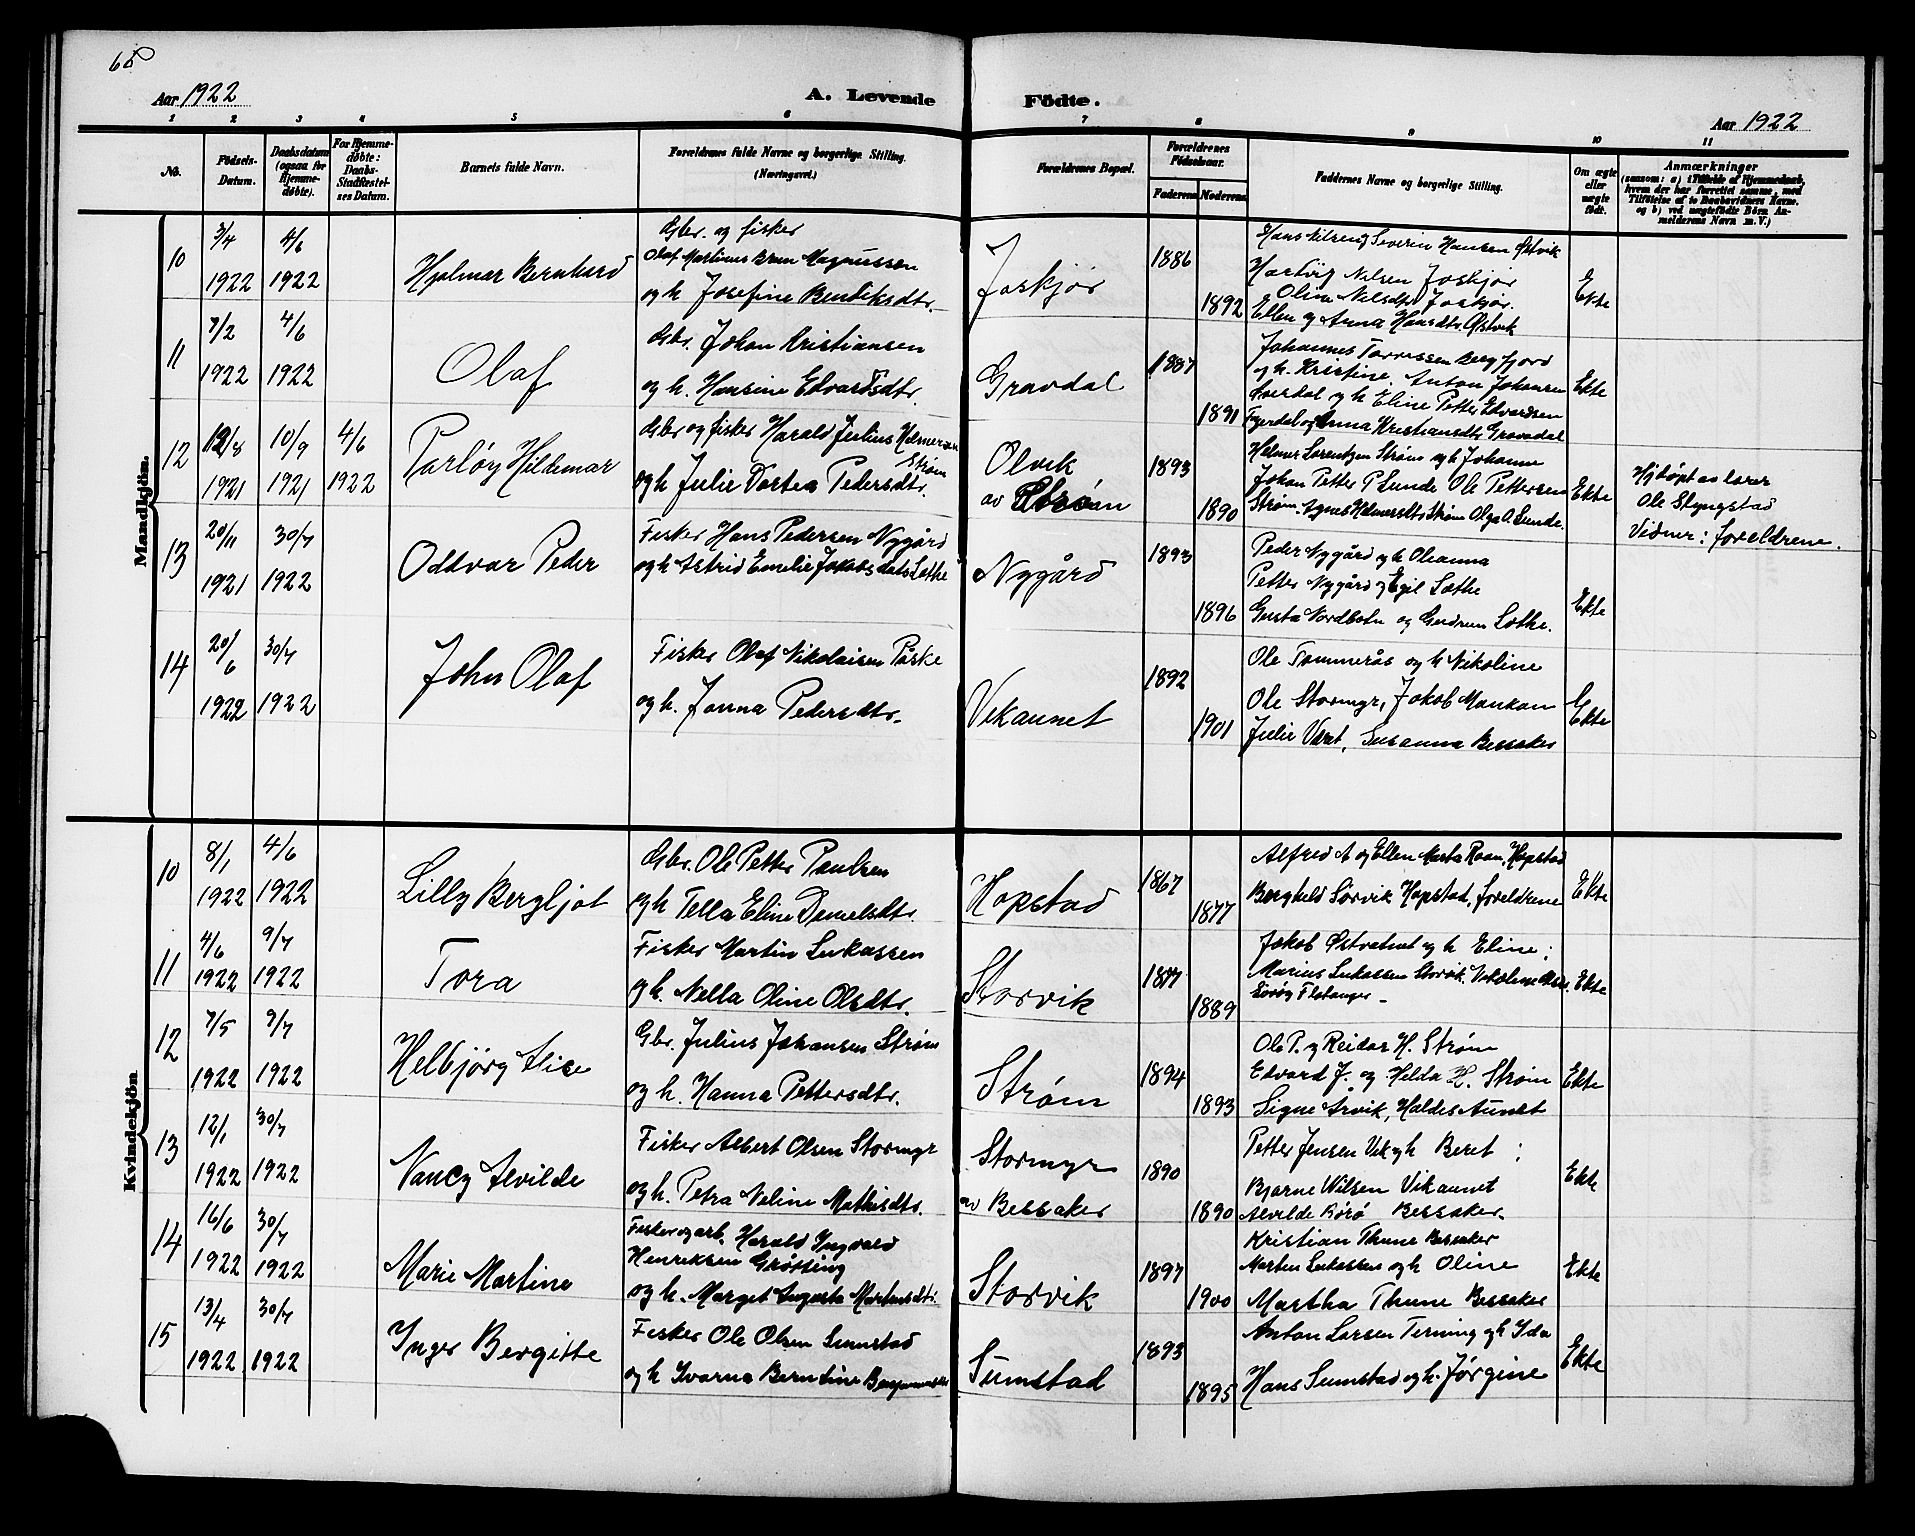 65
Aar 1922
A. Levende Födte.
Aar 1922
1 2 3 4 5 6 7 8 9 10 11
No.
Födsels-Datum.
Daabsdatum (ogsaa for Hjemme-döbte).
For Hjemme-döbte: Daabs-Stadfæstel-ses Datum.
Barnets fulde Navn.
Forældrenes fulde Navne og borgerlige Stilling. (Næringsvei.)
Forældrenes Bopæl.
Forældrenes Födselsaar.
Faderens Moderens
Faddernes Navne og borgerlige Stilling.
Om ægte eller uægte födt.
Anmærkninger
(saasom: a) i Tilfælde af Hjemmedaab, hvem der har forrettet samme, med Tilföielse af to Daabsvidners Navne, og b) ved uægtefödte Börn An-melderens Navn m. V.)
Mandkjön.
10
3/4 1922
4/6 1922
Hjalmar Bernhard
Gbr. og fisker
Olaf Martinus Brun Magnussen
og h. Josefine Bendiksdtr.
Joskjør
1886
1892
Hans Nilsen, Severin Hansen Østvik
Hartvig Nilsen Joskjør
Oline Nilsdtr Joskjør.
Ellen og Anna Hansdtr Østvik
Ekte
11
7/2 1922
4/6 1922
Olaf
Gbr. Johan Kristiansen
og h. Hansine Edvardsdtr.
Gravdal
1887
1891
Johannes Torressen Bergfjord
og h. Kristine. Anton Johansen
og h. Eline Petter Edvardsen
og Anna Kristiansdtr Gravdal
Ekte
12
12/8 1921
10/9 1921
4/6 1922
Parløv Hildemar
Gbr og fisker Harald Julius Helmersen
Strøm
og h Julie Dortea Pedersdtr.
Olvik
av Strøm
1893
1890
Helmer Lorentzen Strøm og h Johanne
Johan Petter P Lunde Ole Pettersen
Strøm. Agnes Helmersdtr Strøm Olga O. Lunde.
Ekte
Hjdøpt av lærer
Ole Styngstad
Vidner: foreldrene.
13
20/11 1921
30/7 1922
Oddvar Peder
Fisker Hans Pedersen Nygård
og h Astrid Emelie Jakobsdatr Lothe
Nygård
1893
1896
Peder Nygård og h Oleanna
Petter Nygård og Egil Lothe
Gusta Nordbotn og Gudrun Lothe.
Ekte
14
20/6 1922
30/7 1922
John Olaf
Fisker Olaf Nikolaisen Påske
og h. Janna Pedersdtr.
Vikaunet
1892
1901
Ole Tommerås og h Nikoline
Ole Stormyr, Jakob Mankan
Julie Vant, Susanna Bessaker
Ekte
Kvindekjön
10
8/1 1922
4/6 1922
Lilly Bergljot
Gbr. Ole Petter Paulsen
og h Tella Eline Danielsdtr.
Hopstad
1867
1877
Alfred A og Ellen Marta Roan, Hopstad
Berghild Sørvik Hopstad, foreldrene
Ekte
11
4/6 1922
9/7 1922
Tora
Fisker Martin Lukassen
og h. Nella Oline Olsdtr.
Storvik
1877
1889
Jakob Østvatnet og h Eline;
Marius Lukassen Storvik,
Flatanger –
Ekte
12
7/5 1922
9/7 1922
Helbjørg Alice
Gbr. Julius Johansen Strøm
og h. Hanna Pettersdtr.
Strøm
1894
1893
Ole P. og Reidar H. Strøm
Edvard J. og Helda H. Strøm
Signe Arvik, Haldis Aunet
Ekte
13
12/1 1922
30/7 1922
Nancy Alvilde
Fisker Albert Olsen Stormyr
og h. Petra Neline Mathisdtr.
Stormyr
av Bessaker
1890
1890
Petter Jensen Vik og h Beret;
Bjarne Wilsen Vikaunet
Alvilde Rørø Bessaker.
Ekte
14
16/6 1922
30/7 1922
Marie Martine
Fisker og arb. Harald Ingvald
Henriksen Grøtting
og h. Marget Augusta Martinsdtr.
Storvik
1897
1900
Kristian Thune Bessaker
Martin Lukassen og h Oline
Martha Thune Bessaker
Ekte
15
13/4 1922
30/7 1922
Inger Bergitte
Fisker Ole Olsen Sumstad
og h Ivarna Berntine
Sumstad
1893
1895
Anton Larsen Terning og h Ida
Hans Sumstad og h. Jørgine
Ekte